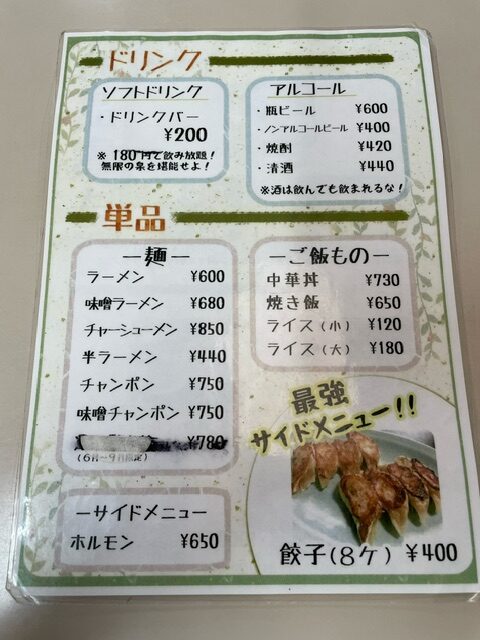 ドリンク
ソフトドリンク
・ドリンクバー
¥200
※ 180円で飲み放題!
無限の泉を堪能せよ!
アルコール
・瓶ビール ¥600
・ノンアルコールビール ¥400
・焼酎 ¥420
・清酒 ¥440
※酒は飲んでも飲まれるな!
単品
ー麺ー
ラーメン ¥600
味噌ラーメン ¥680
チャーシューメン ¥850
半ラーメン ¥440
チャンポン ¥750
味噌チャンポン ¥750
¥780
(6月~9月限定)
ーご飯ものー
中華丼 ¥730
焼き飯 ¥650
ライス(小) ¥120
ライス(大) ¥180
最強
サイドメニュー!!
餃子(8ケ) ¥400
ーサイドメニューー
ホルモン ¥650